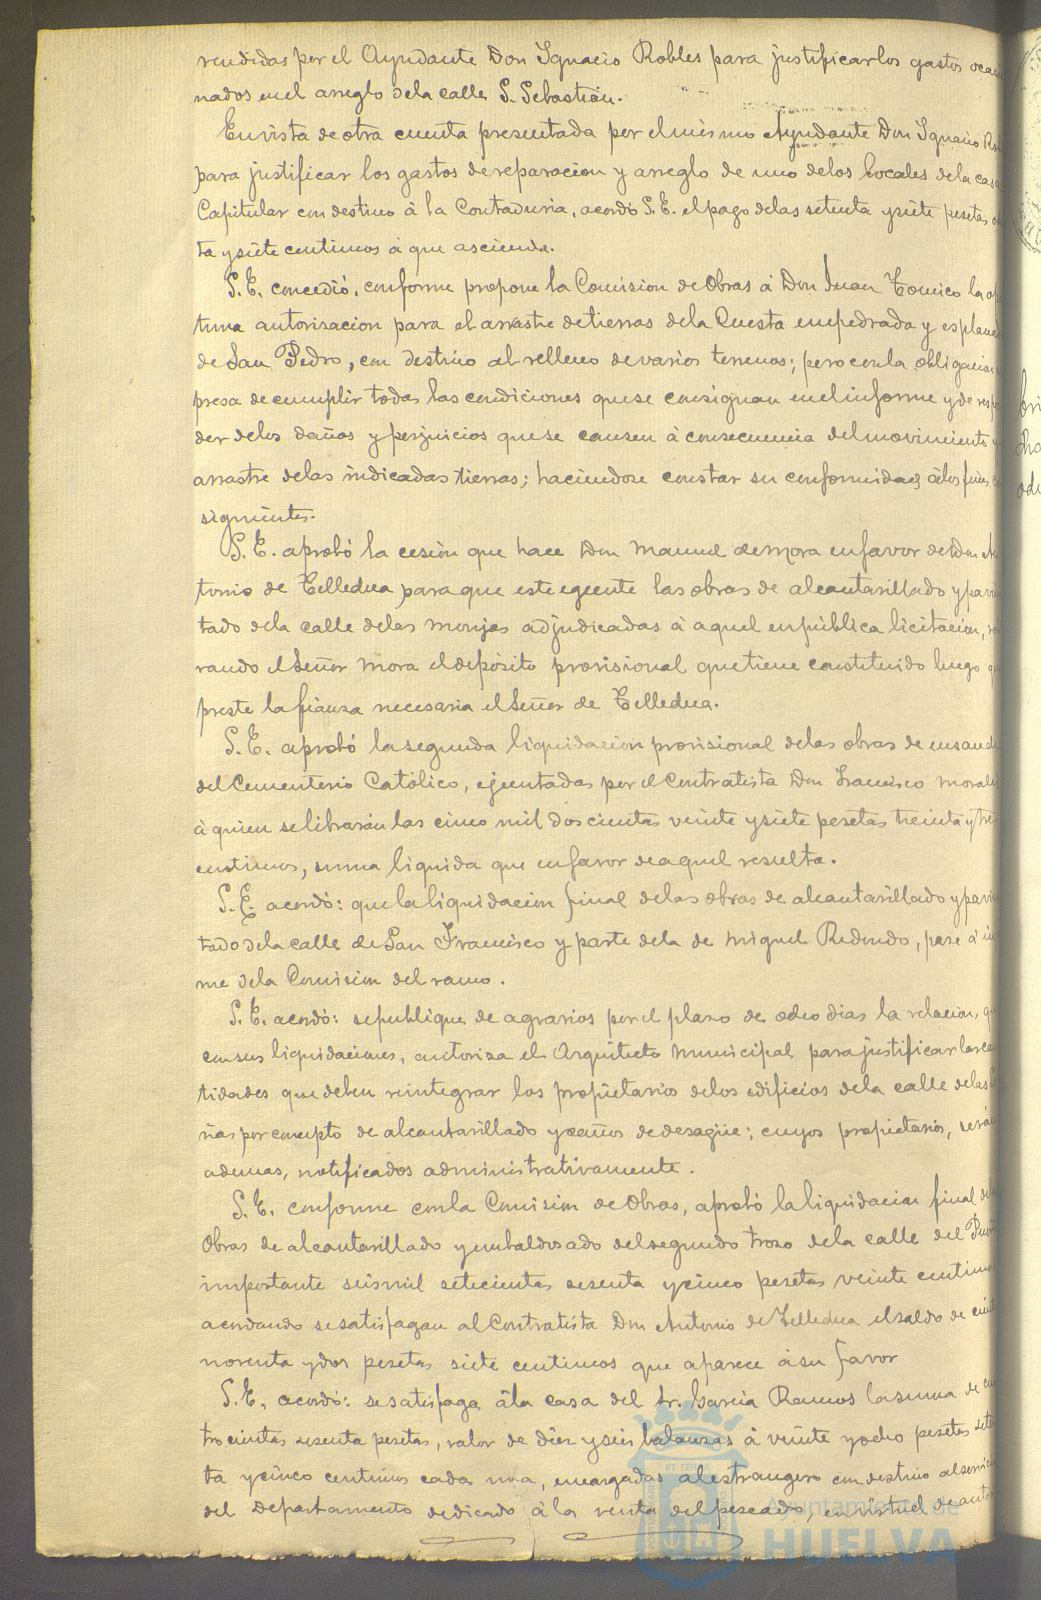 rendidas por el Ayudante Don Ignacio Robles para justificar los gastos ocasio
nados en el arreglo de la calle S. Sebastián.
En vista de otra cuenta presentada por el mismo Ayudante Don Ignacio Rob
para justificar los gastos de reparacion y arreglo de uno de los locales de la casa
Capitular con destino á la Contaduria, acordó S.E. el pago de las setenta y siete pesetas
ta y siete centimos á que asciende.
S.E. concedió, conforme propone la Comision de Obras á Don Juan Tomico la
tuna autorizacion para el arrastre de tierras de la Cuesta empedrada y esplana
de San Pedro, con destino al relleno de varios terrenos; pero con la obligacion
presa de cumplir todas las condiciones que se consignan en el informe y de res
der de los daños y perjuicios que se causen á consecuencia del movimiento y
arrastre de las indicadas tierras; haciendose constar su conformidad á los fines
siguientes.
S.E. aprobó la cesion que hace Don Manuel de Mora en favor de Don An
tonio de Telledua para que este egecute las obras de alcantarillado y pavi
tado de la calle de las Monjas adjudicadas á aquel en pública licitacion,
rando el Señor Mora el depósito provisional que tiene constituido luego
preste la fianza necesaria el Señor de Telledua.
S.E. aprobó la segunda liquidacion provisional de las obras de ensanche
del Cementerio Católico, ejecutadas por el Contratista Don Francisco Morales
á quien se librarán las cinco mil doscientas veinte y siete pesetas treinta y tres
centimos, suma liquida que en favor de aquel resulta.
S.E. acordó: que la liquidacion final de las obras de alcantarillado y pavi
tado de la calle de San Francisco y parte de la de Miguel Redondo, pase á in
me de la Comision del ramo.
S.E. acordó: se publique de agrarios por el plazo de ocho dias la relacion, que
con sus liquidaciones, autoriza el Arquitecto Municipal para justificar las can
tidades que deben reintegrar los propietarios de los edificios de la calle de las
ñas por concepto de alcantarillado y caños de desagüe; cuyos propietarios, serán
ademas, notificados administrativamente.
S.E. conforme con la Comision de Obras, aprobó la liquidacion final de
Obras de alcantarillado y embaldosado del segundo trozo de la calle del Puer
importante seis mil setecientas sesenta y cinco pesetas veinte centimos
acordando se satisfagan al Contratista Don Antonio de Telledua el saldo de ciento
noventa y dos pesetas siete centimos que aparece á su favor
S.E. acordó: se satisfaga á la casa del Sr. Garcia Ramos la suma de cua
trocientas sesenta pesetas, valor de diez y seis balanzas á veinte y ocho pesetas seten
ta y cinco centimos cada una, encargadas al estrangero con destino al servicio
del Departamento dedicado á la venta del pescado, en virtud de auto
Ayuntamiento de
HUELVA